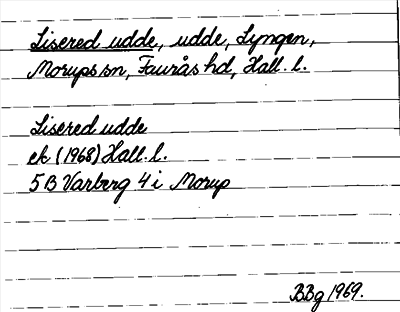 Lisered udde, udde, Lyngen,
Morups sn, Faurås hd, Hall. l.
Lisered udde
ek (1968) Hall. l.
5B Varberg 4 i Morup
BBg 1969.